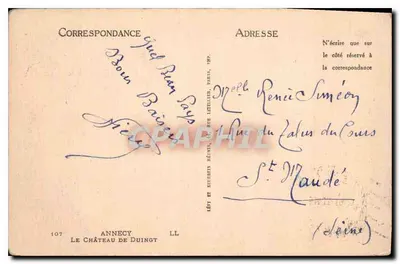 CORRESPONDANCE
ADRESSE
N'écrire que sur
le côté réservé à
la correspondance
Quel Beau Pays
Bons Baisers
Melle Renée Siméon
Rue du Talus du Cours
St Mandé
(Seine)
LÉVY ET NEURDEIN RÉUNIS, PARIS, IMP.
CPArama.com
107
ANNECY
LL
LE CHÂTEAU DE DUINGT